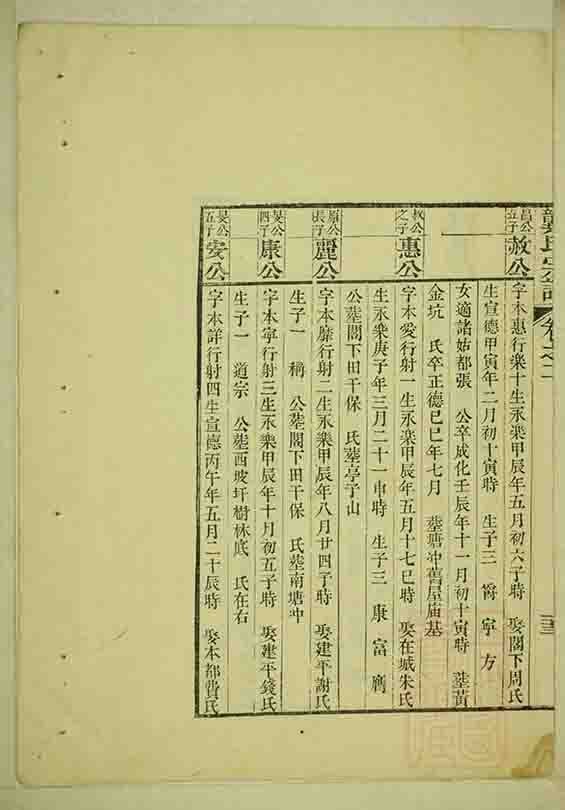 龔氏宗譜 卷之二
三三
昌公五子 赦公 字本惠行樂十生永樂甲辰年五月初六子時 娶閣下周氏
生宣德甲寅年二月初十寅時 生子三 爵 寧 方
女適諸姑都張 公卒成化壬辰年十一月初十寅時 塟黃
金坑 氏卒正德巳巳年七月 塟塘冲舊屋庙基
赦公之子 惠公 字本愛行射一生永樂甲辰年五月十七巳時 娶在城朱氏
生永樂庚子年三月二十一申時 生子三 康 富 膺
公塟閣下田干保 氏塟亭子山
長子 麗公 字本靡行射二生永樂甲辰年八月廿四子時 娶建平謝氏
生子一 稱 公塟閣下田干保 氏塟南塘冲
旻公四子 康公 字本寧行射三生永樂甲辰年十月初五子時 娶建平錢氏
生子一 道宗 公塟西坡圩樹林底 氏在右
旻公五子 安公 字本詳行射四生宣德丙午年五月二十辰時 娶本都費氏